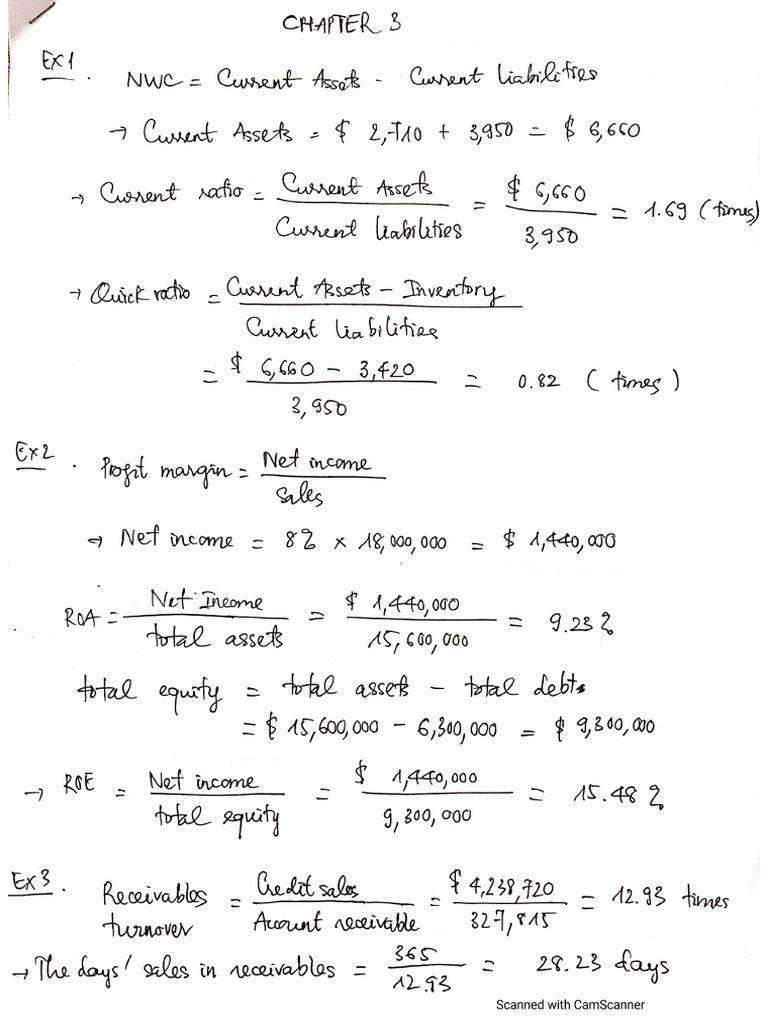 CHAPTER 3
Ex1. NWC = Current Assets - Current Liabilities
→ Current Assets = $ 2,710 + 3,950 = $ 6,660
→ Current ratio = Current Assets / Current liabilities = $ 6,660 / 3,950 = 1.69 (times)
→ Quick ratio = Current Assets - Inventory / Current liabilities
= $ 6,660 - 3,420 / 3,950 = 0.82 (times)
Ex2. Profit margin = Net income / sales
→ Net income = 8% × 18,000,000 = $ 1,440,000
ROA = Net Income / total assets = $ 1,440,000 / 15,600,000 = 9.23%
total equity = total assets - total debts
= $ 15,600,000 - 6,300,000 = $ 9,300,000
→ ROE = Net income / total equity = $ 1,440,000 / 9,300,000 = 15.48%
Ex3. Receivables turnover = Credit sales / Account receivable = $ 4,238,720 / 327,815 = 12.93 times
→ The days' sales in receivables = 365 / 12.93 = 28.23 days
Scanned with CamScanner